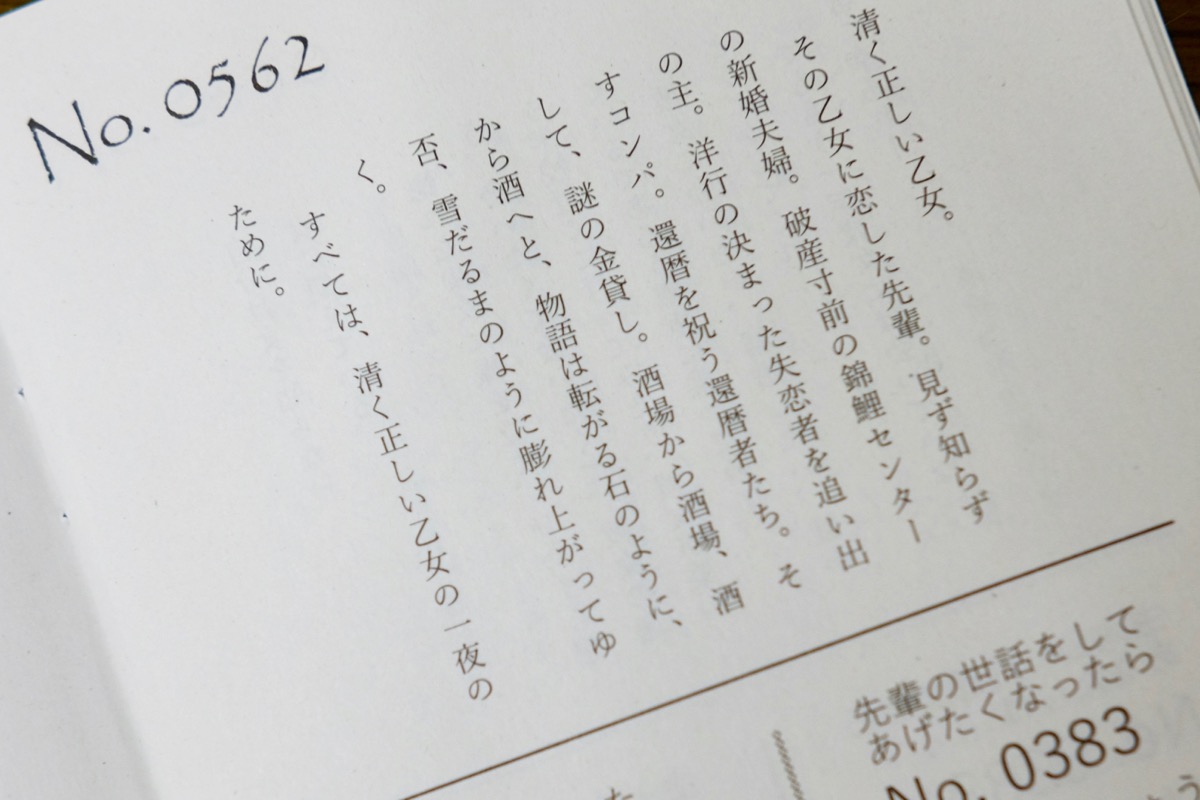 No. 0562
清く正しい乙女。
その乙女に恋した先輩。見ず知らず
の新婚夫婦。破産寸前の錦鯉センター
の主。洋行の決まった失恋者を追い出
すコンパ。還暦を祝う還暦者たち。そ
して、謎の金貸し。酒場から酒場、酒
から酒へと、物語は転がる石のように、
否、雪だるまのように膨れ上がってゆ
く。
すべては、清く正しい乙女の一夜の
ために。
先輩の世話をして
あげたくなったら
No. 0383